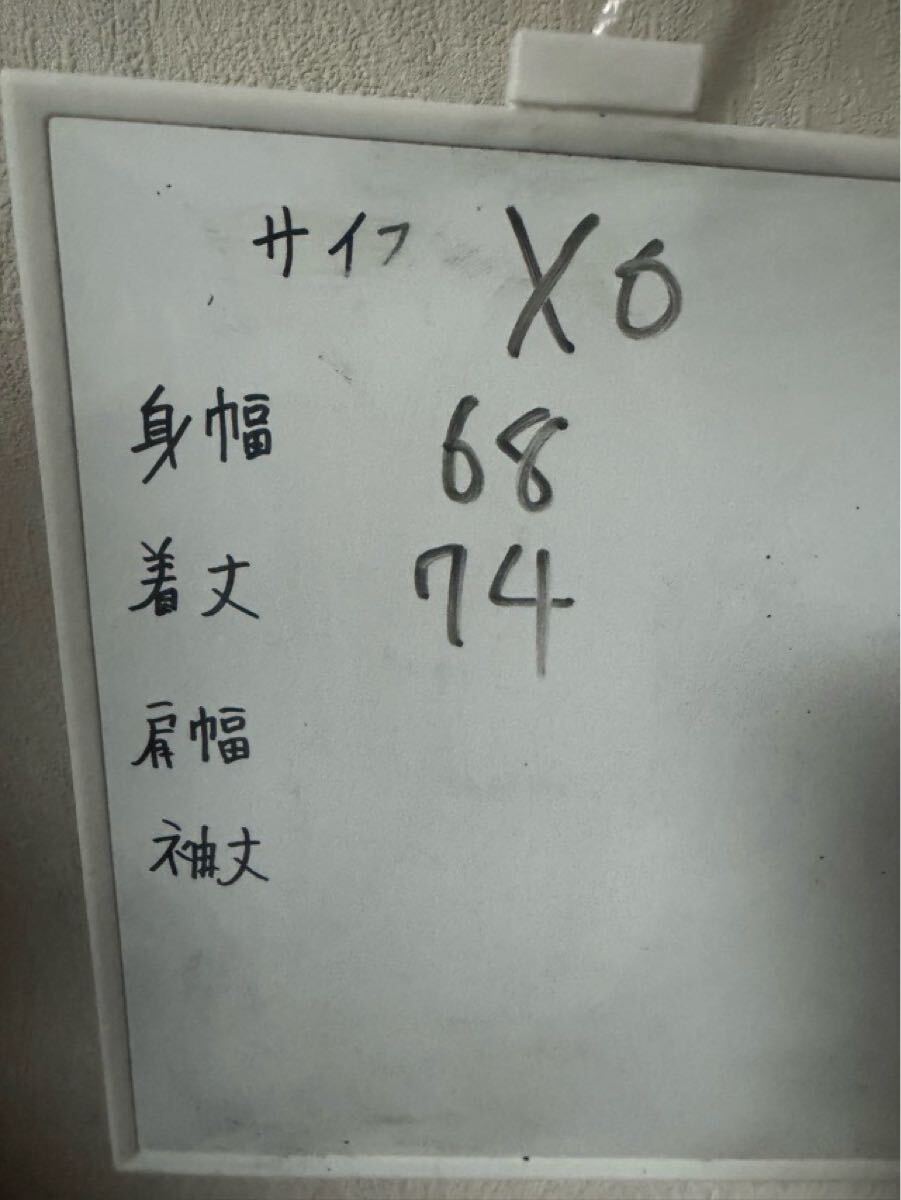 サイフ XO
身幅 68
着丈 74
肩幅
袖丈